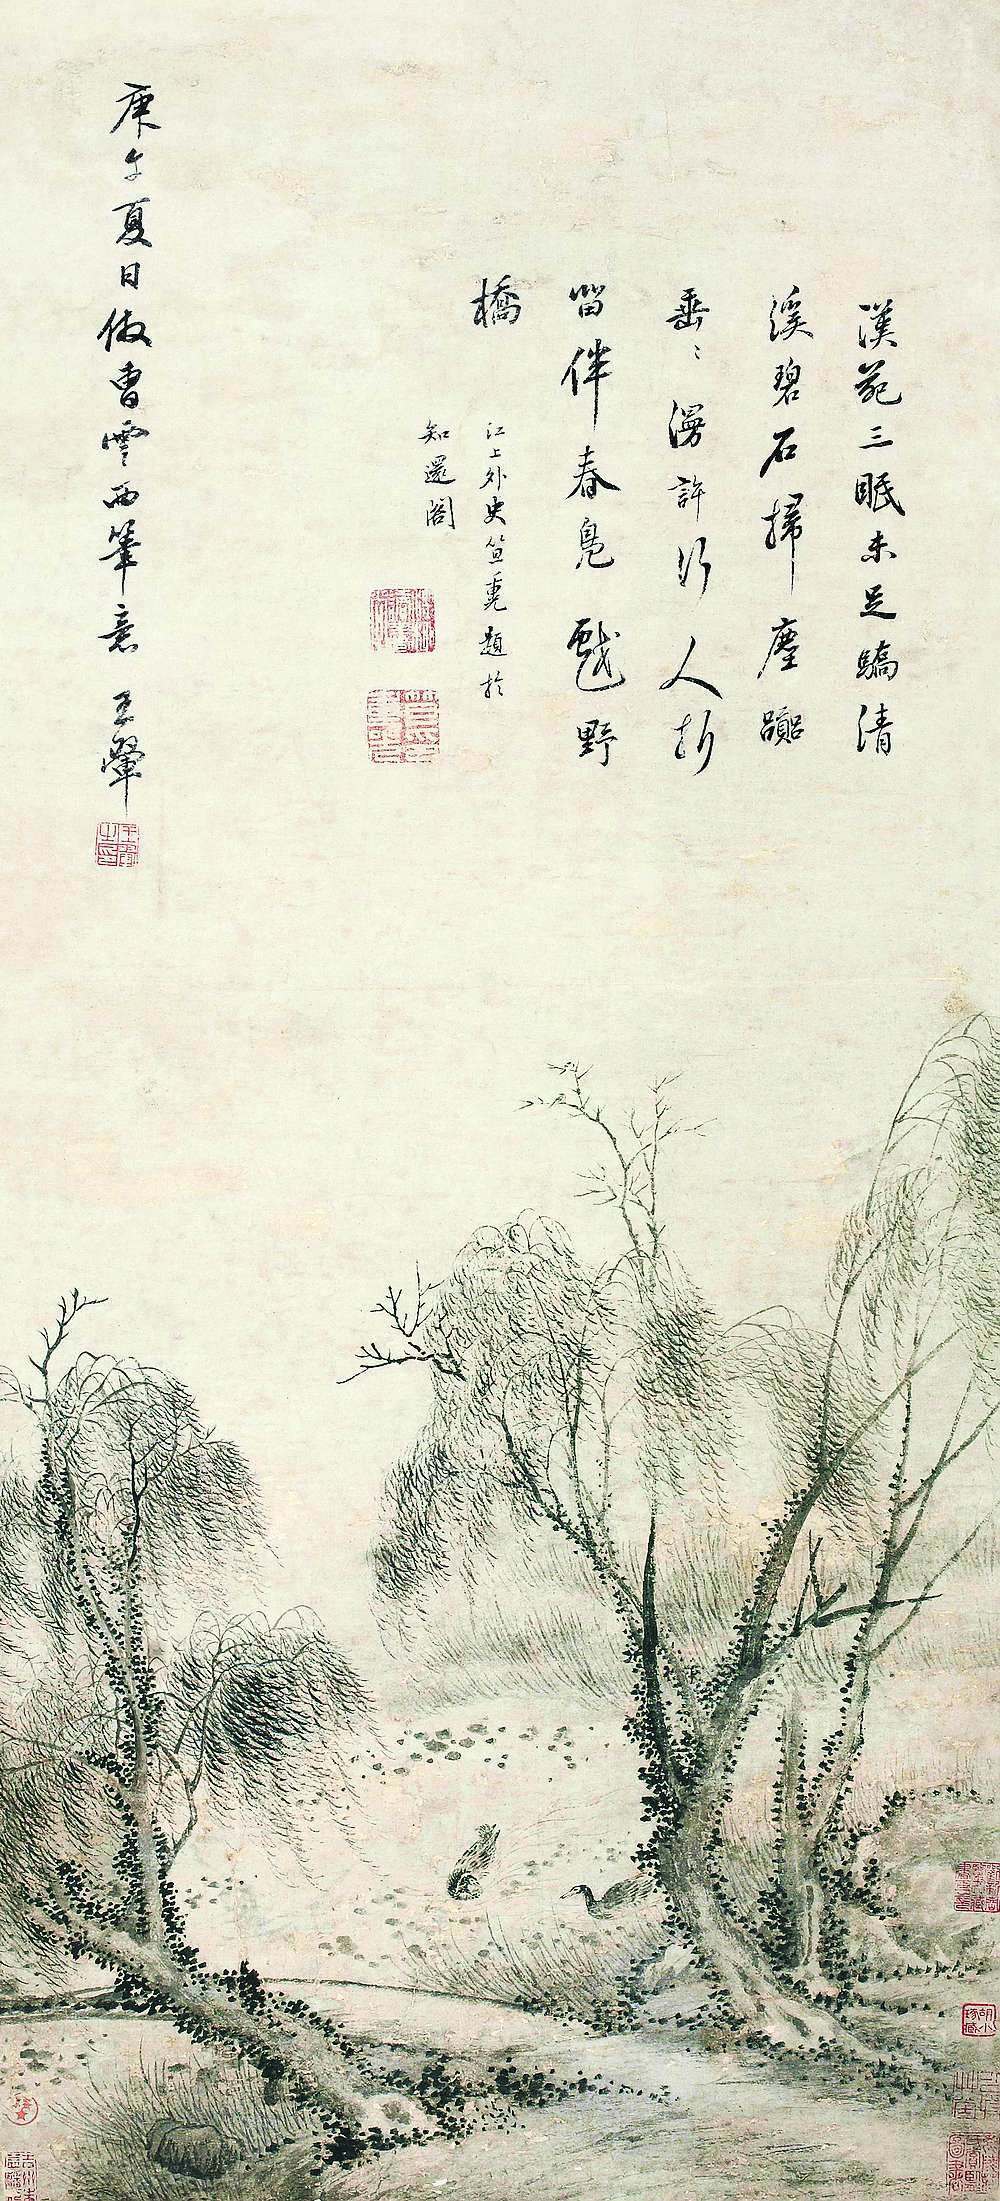 漢苑三眠未足驕清
溪碧石掃塵囂
垂〻漫許行人折
留伴春鳧戲野
橋
江上外史笪重光題於
知還閣
庚午夏日倣曹雲西筆意 王翬
王翬之印